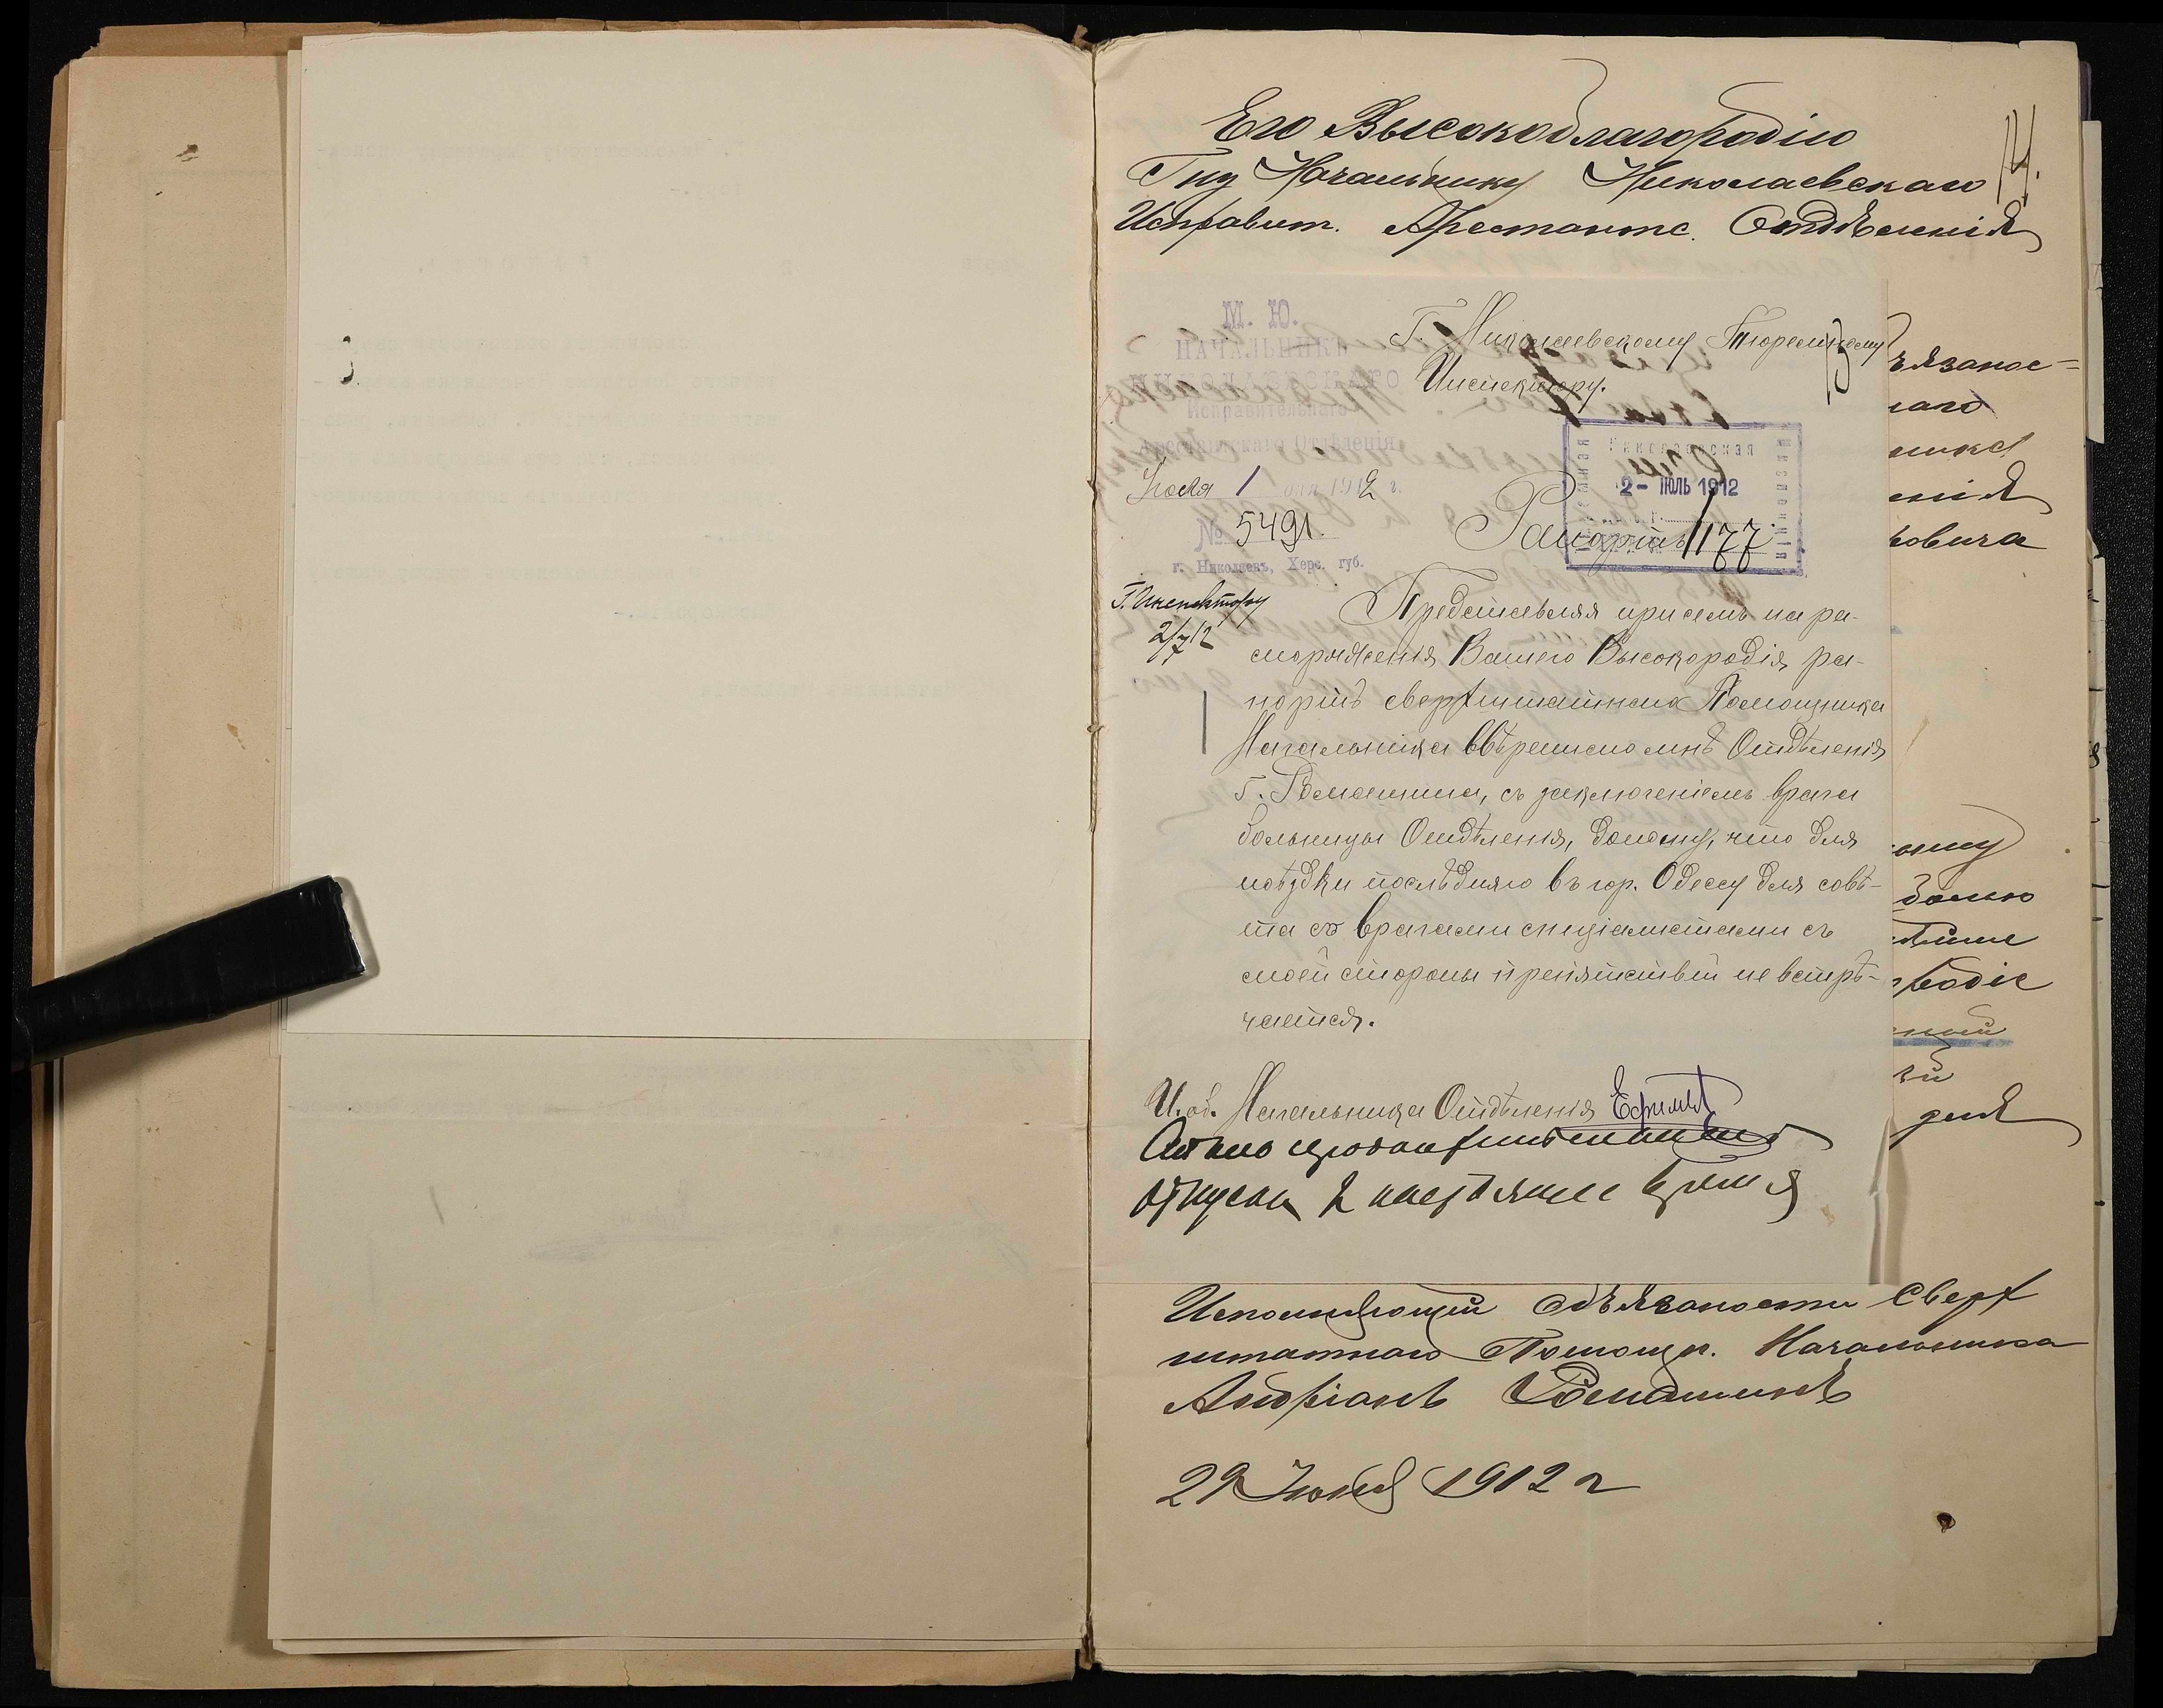 Его Высокоблагородію
Гну Начальнику Николаевскаго
Исправит. Арестантс. Отдѣленія
14.
М. Ю.
НАЧАЛЬНИКЪ
НИКОЛАЕВСКАГО
Исправительнаго
Арестантскаго Отдѣленія
Іюля 1 дня 1912 г.
№ 5491.
г. Николаевъ, Херс. губ.
Г. Николаевскому Тюремному
Инспектору.
13
Николаевская
2 - ІЮЛЬ 1912
1177
Рапортъ
Г. Инспектору
2/7 12
Представляя при семъ на ра-
споряженія Вашего Высокородія, ра-
портъ сверхштатнаго Помощника
Начальника ввѣреннаго мнѣ Отдѣленія
г. Ромашина, съ заключеніемъ врача
больницы Отдѣленія, доношу, что для
поѣздки послѣдняго въ гор. Одессу для совѣ-
та съ врачами спеціалистами съ
моей стороны препятствій не встрѣ-
чается.
И. об. Начальника Отдѣленія Ефимовъ
отпуска в настоящее время
ъязанос-
наго
ника
енія
ковича
дня
Исполняющій объязаности Сверх
штатнаго Помощн. Начальника
Андріанъ Ромашинъ
29 Июня 1912 г